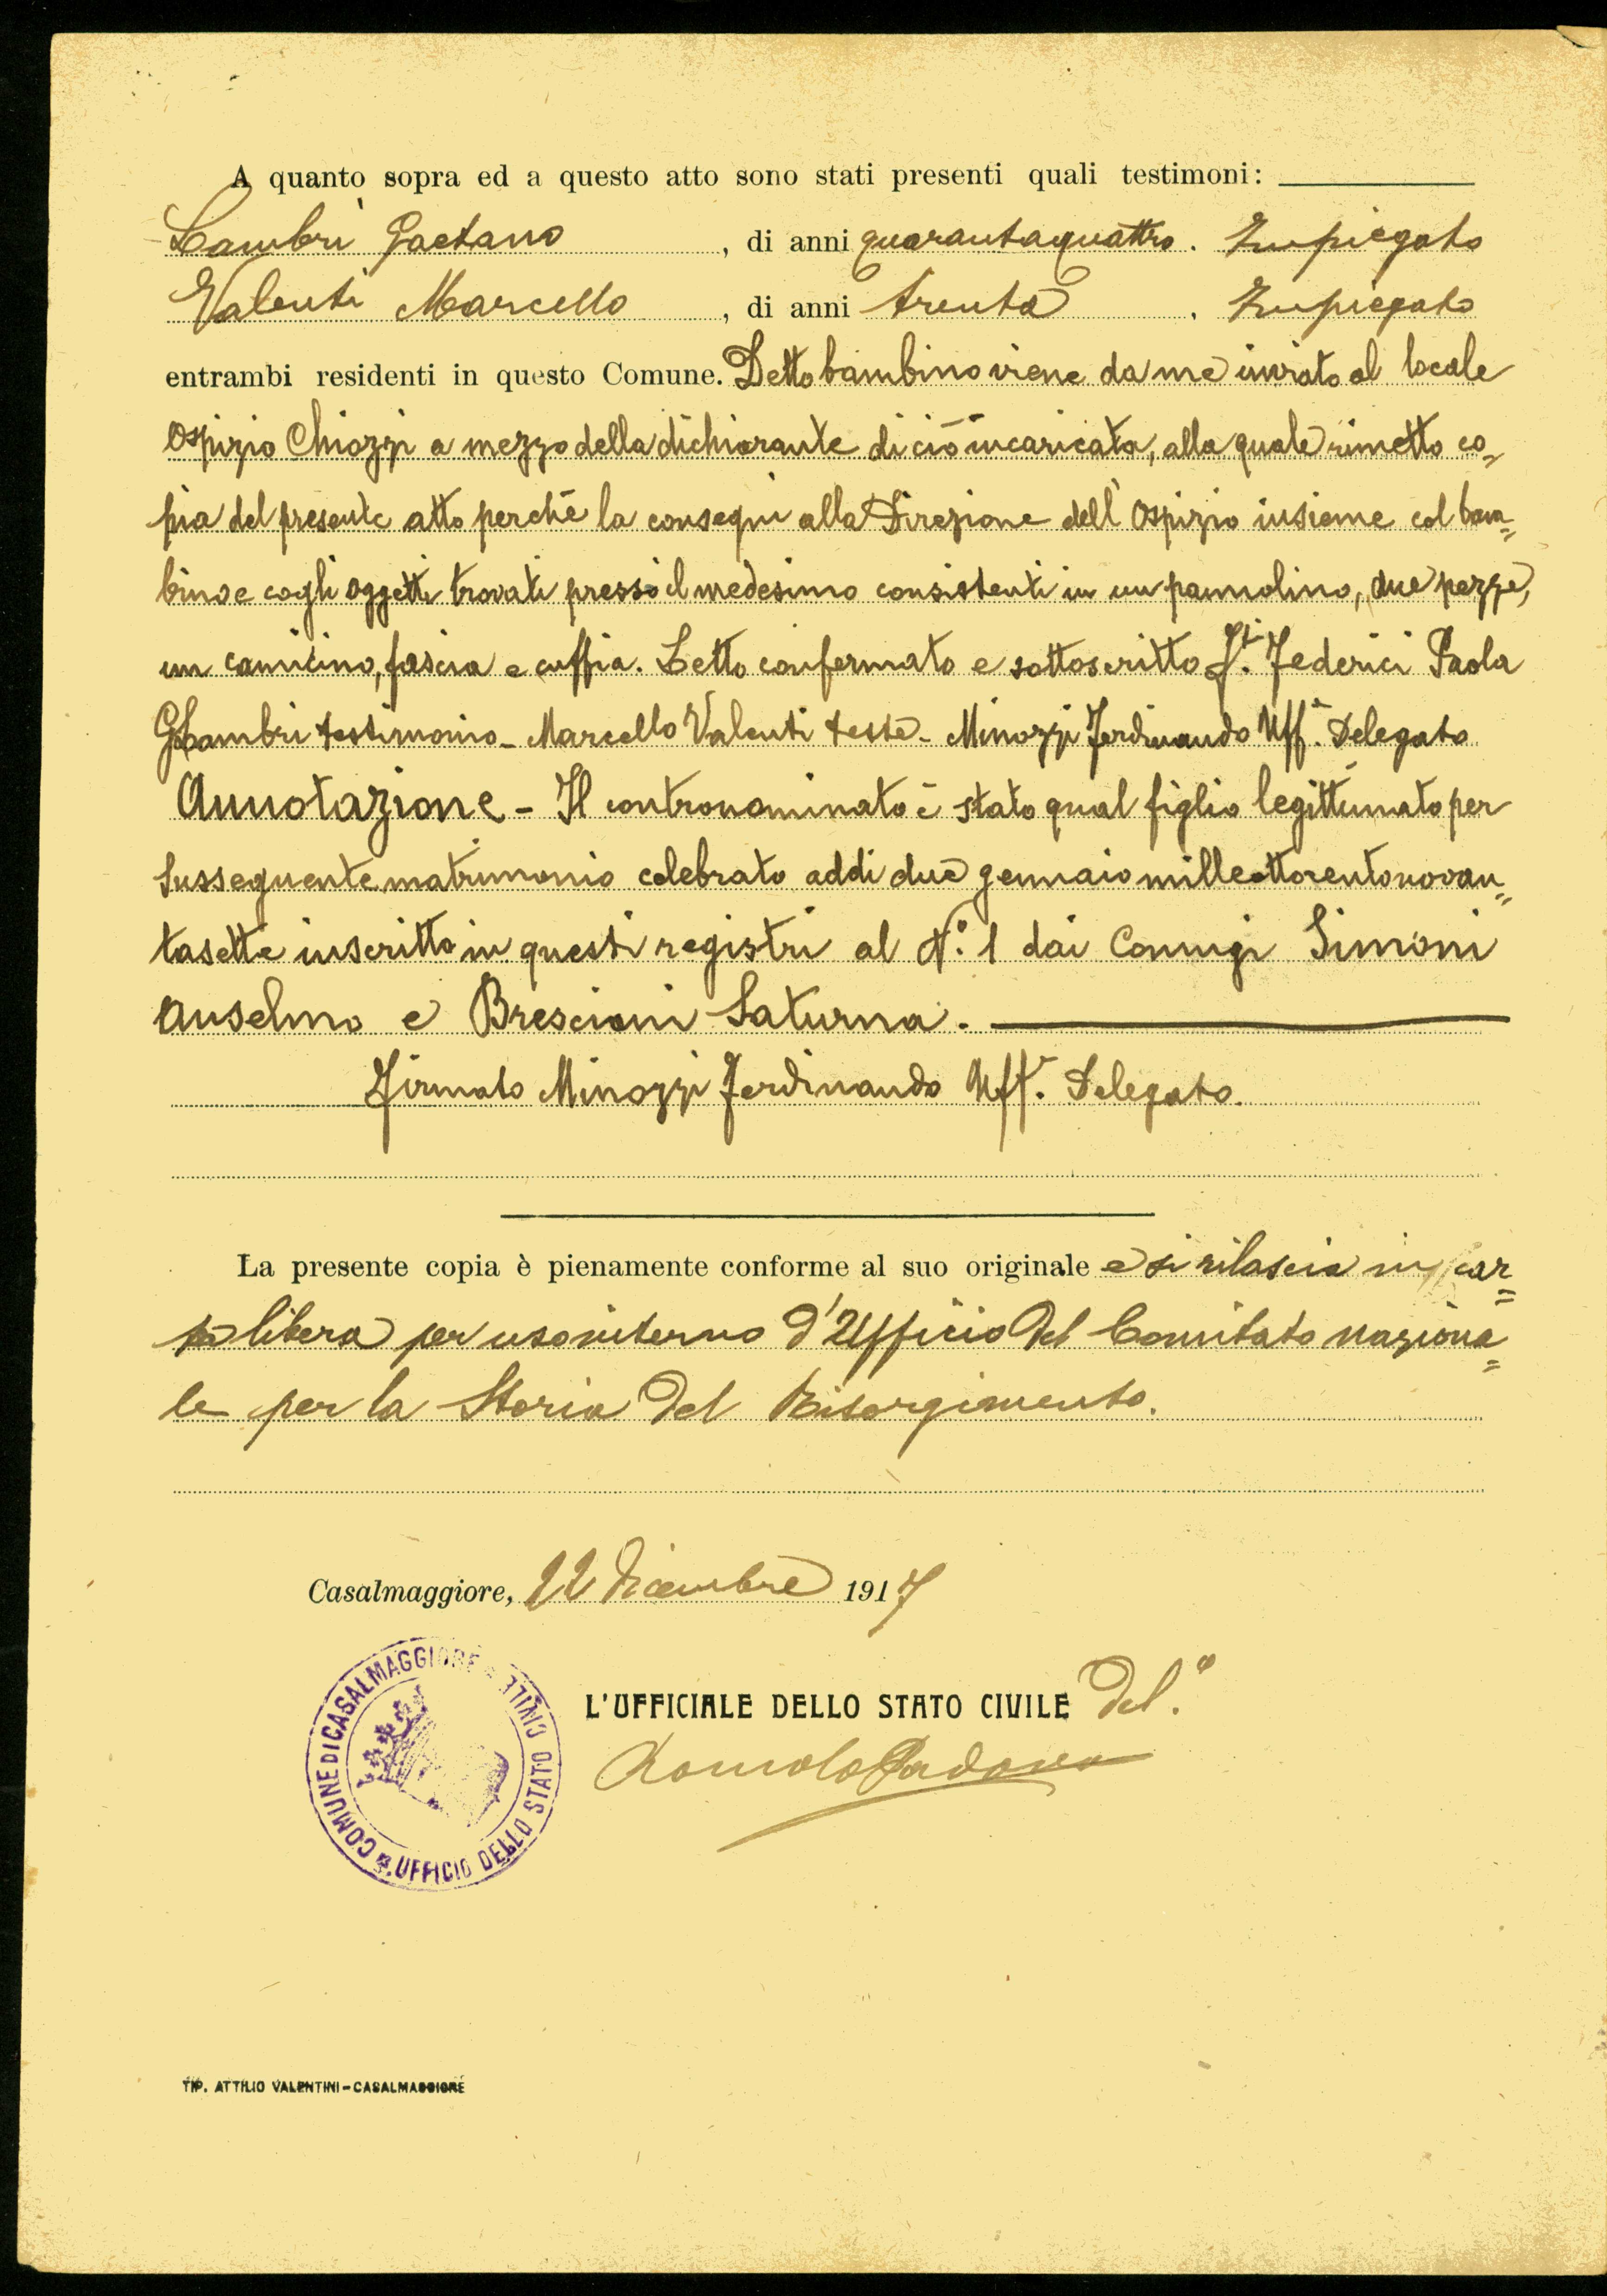 A quanto sopra ed a questo atto sono stati presenti quali testimoni:
Lambri Gaetano, di anni quarantaquattro. Impiegato
Valenti Marcello, di anni trenta, Impiegato
entrambi residenti in questo Comune. Detto bambino viene da me inviato al locale
Ospizio Chiozzi a mezzo della dichiarante di ciò incaricata, alla quale rimetto co=
pia del presente atto perché la consegni alla Direzione dell'Ospizio insieme col bam=
bino e cogli oggetti trovati presso il medesimo consistenti in un pannolino, due pezze,
un camicino, fascia e cuffia. Letto confermato e sottoscritto F.ti Federici Paola
G. Lambri testimonio - Marcello Valenti teste - Minozzi Ferdinando Uff. Delegato
Annotazione - Il contronominato è stato qual figlio legittimato per
susseguente matrimonio celebrato addi due gennaio milleottocentonovan=
tasette inscritto in questi registri al N.° 1 dai Coniugi Simoni
Anselmo e Brescioni Saturna.
Firmato Minozzi Ferdinando Uff. Delegato.
La presente copia è pienamente conforme al suo originale e si rilascia in car=
ta libera per uso interno d'Ufficio del Comitato naziona=
le per la Storia del Risorgimento.
Casalmaggiore, 22 Dicembre 1917
COMUNE DI CASALMAGGIORE
UFFICIO DELLO STATO CIVILE
L'UFFICIALE DELLO STATO CIVILE Del.°
Romolo Padova
TIP. ATTILIO VALENTINI - CASALMAGGIORE